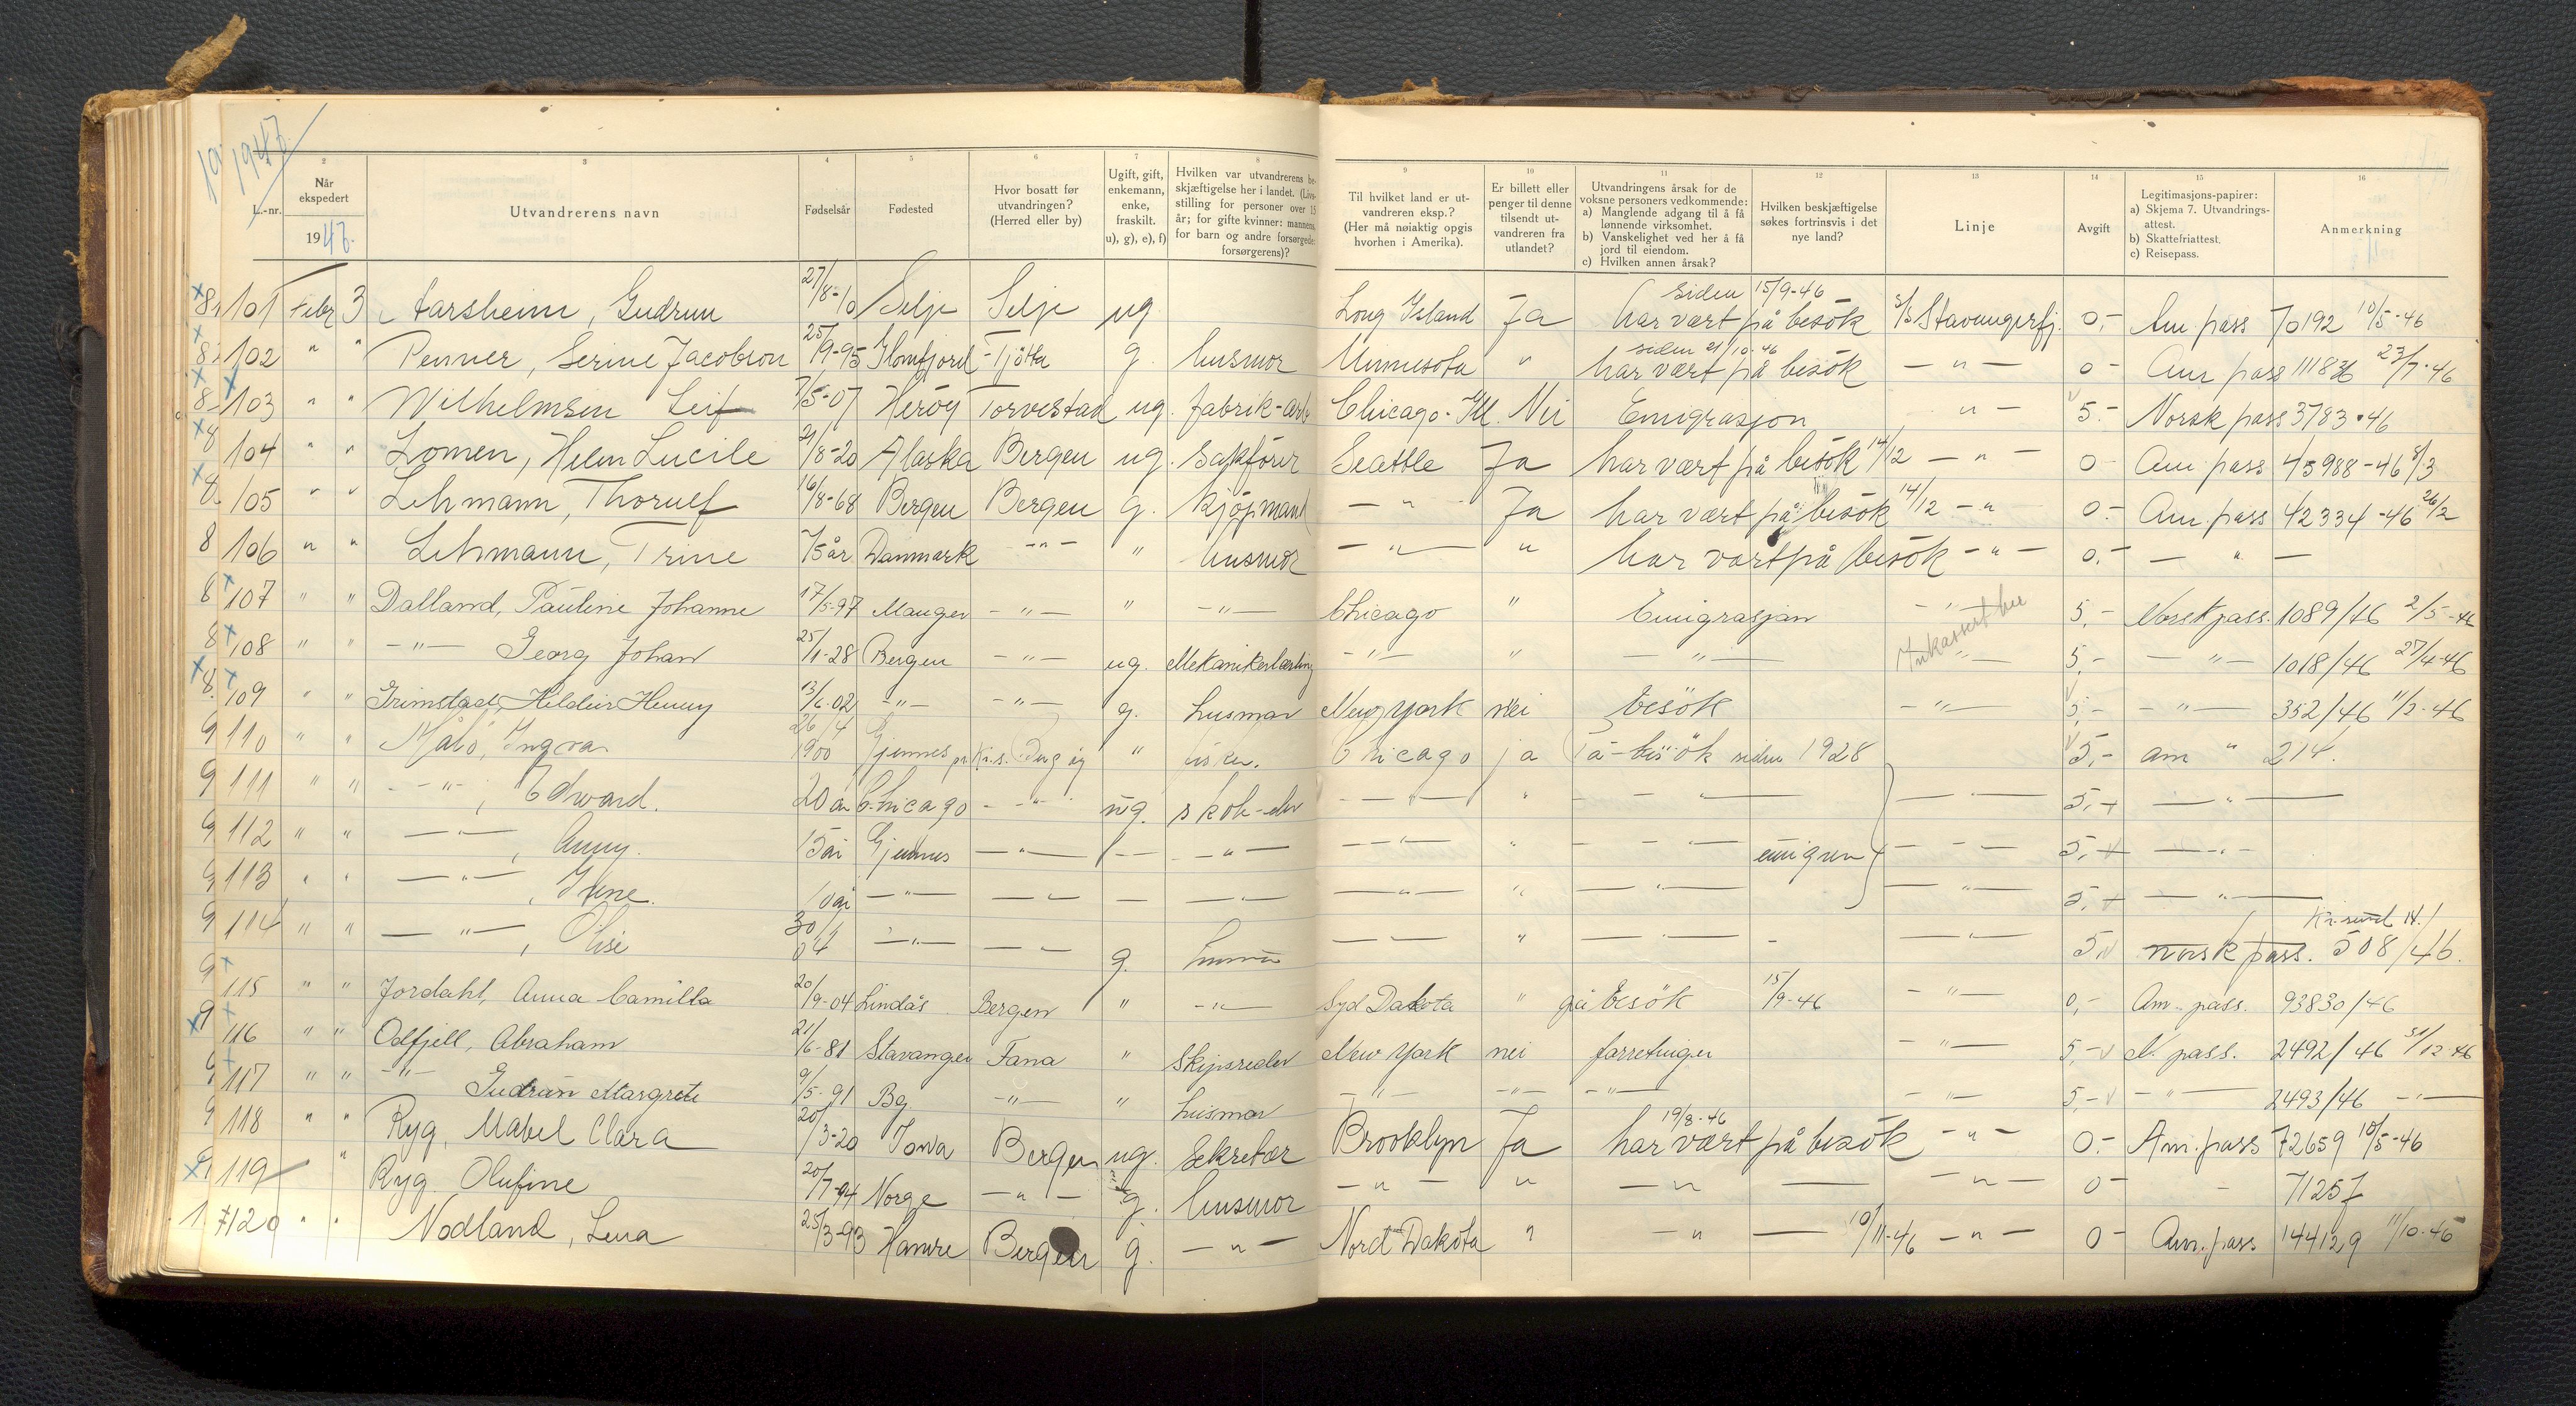 1947.
2 3 4 5 6 7 8 9 10 11 12 13 14 15 16
L.-nr. | Når ekspedert 1947. | Utvandrerens navn | Fødselsår | Fødested | Hvor bosatt før utvandringen? (Herred eller by) | Ugift, gift, enkemann, enke, fraskilt. u), g), e), f) | Hvilken var utvandrerens beskjæftigelse her i landet. (Livsstilling for personer over 15 år; for gifte kvinner: mannens, for barn og andre forsørgede: forsørgerens)? | Til hvilket land er utvandreren eksp.? (Her må nøiaktig opgis hvorhen i Amerika). | Er billett eller penger til denne tilsendt utvandreren fra utlandet? | Utvandringens årsak for de voksne personers vedkommende: a) Manglende adgang til å få lønnende virksomhet. b) Vanskelighet ved her å få jord til eiendom. c) Hvilken annen årsak? | Hvilken beskjæftigelse søkes fortrinsvis i det nye land? | Linje | Avgift | Legitimasjons-papirer: a) Skjema 7. Utvandringsattest. b) Skattefriattest. c) Reisepass. | Anmerkning
101 Febr 3 Aarsheim, Gudrun 27/8-10 Selje Selje ug Long Island Ja har vært på besök siden 15/9-46 S/S Stavangerfj. 0,- Am pass 70192 10/5-46
102 " " Penner, Serine Jacobson 25/9-95 Glomfjord Tjötta g. husmor Minnesota " har vært på besök siden 21/10-46 - " - 0 - Am pass 111836 23/7-46
103 " " Wilhelmsen Leif 7/5-07 Heröy Torvestad ug. fabrik-arb Chicago-Ill. Nei Emigrasjon " - 5.- Norsk pass 3783-46
104 " " Lomen, Helen Lucile 21/8-20 Alaska Bergen ug. Sakförer Seattle Ja har vært på besök 14/12 - " - 0 - Am pass 45988-46 8/3
105 " " Lehmann, Thorulf 16/8-68 Bergen Bergen g. Kjöpmann - " - Ja har vært på besök 14/12 - " 0.- Am. pass 42334-46 26/2
106 " " Lehmann, Trine 75 år Danmark - " - " husmor - " - " har vært på besök - " - 0.- - " -
107 " " Dalland, Pauline Johanne 17/5-97 Manger - " - " - " - Chicago " Emigrasjon - " - 5,- Norsk pass. 1089/46 2/5-46
108 " " - " - Georg Johan 25/1-28 Bergen - " - ug. Mekanikerlærling - " - " - " - 5,- - " - 1018/46 27/4-46
109 " " Grimstad, Hildur Henny 13/6-02 - " - - " - g. husmor New York nei besök - " - 5,- - " - 352/46 11/2-46
110 " " Målö, Ingvar 26/4 1900 Gjemnes pr. Kr.s. " fisker. Chicago ja på besök siden 1928 5,- am " 214.
111 " " - " -, Edward. 20 år Chicago - " - ug. skole-elev - " - " - " - - " - 5,- - " -
112 " " - " -, Anny. 15 år Gjemnes - " - - - " - - " - " - " - emigrer - " - 5,- - " -
113 " " - " -, Irene. 10 år - " - - " - - - " - - " - " - " - - " - 5,- - " -
114 " " - " -, Elise 30/1 04 - " - - " - g. husmor - " - " - " - - - " - 5,- norsk pass. 508/46. Kr.sund
115 " " Jordahl, Anna Camilla 20/9-04 Lindås Bergen " - " - Syd Dakota " på besök 15/9-46 - " - 0,- Am-pass. 93830/46
116 " " Odfjell, Abraham 21/6-81 Stavanger Fana " Skipsreder New York nei forretninger - " - 5,- N. pass. 2492/46 31/12-46
117 " " - " - Gudrun Margrete 9/5-91 Bg. - " - " husmor - " - - " - - " - - " - 5,- - " - 2493/46 - " -
118 " " Ryg, Mabel Clara 20/3-20 Iowa Bergen ug. Sekretær Brooklyn Ja har vært på besök 19/8-46 - " - 0.- Am. pass 72659 10/5-46
119 " Ryg Olufine 20/7-94 Norge - " - g. husmor - " - " - " - - " - 0 - - 71257
120 " " Nodland, Lena 25/3-93 Hamre Bergen g. - " - Nord Dakota " - " - 10/11-46 - " - 0 - Am. pass 144129 11/10-46
Inkassert